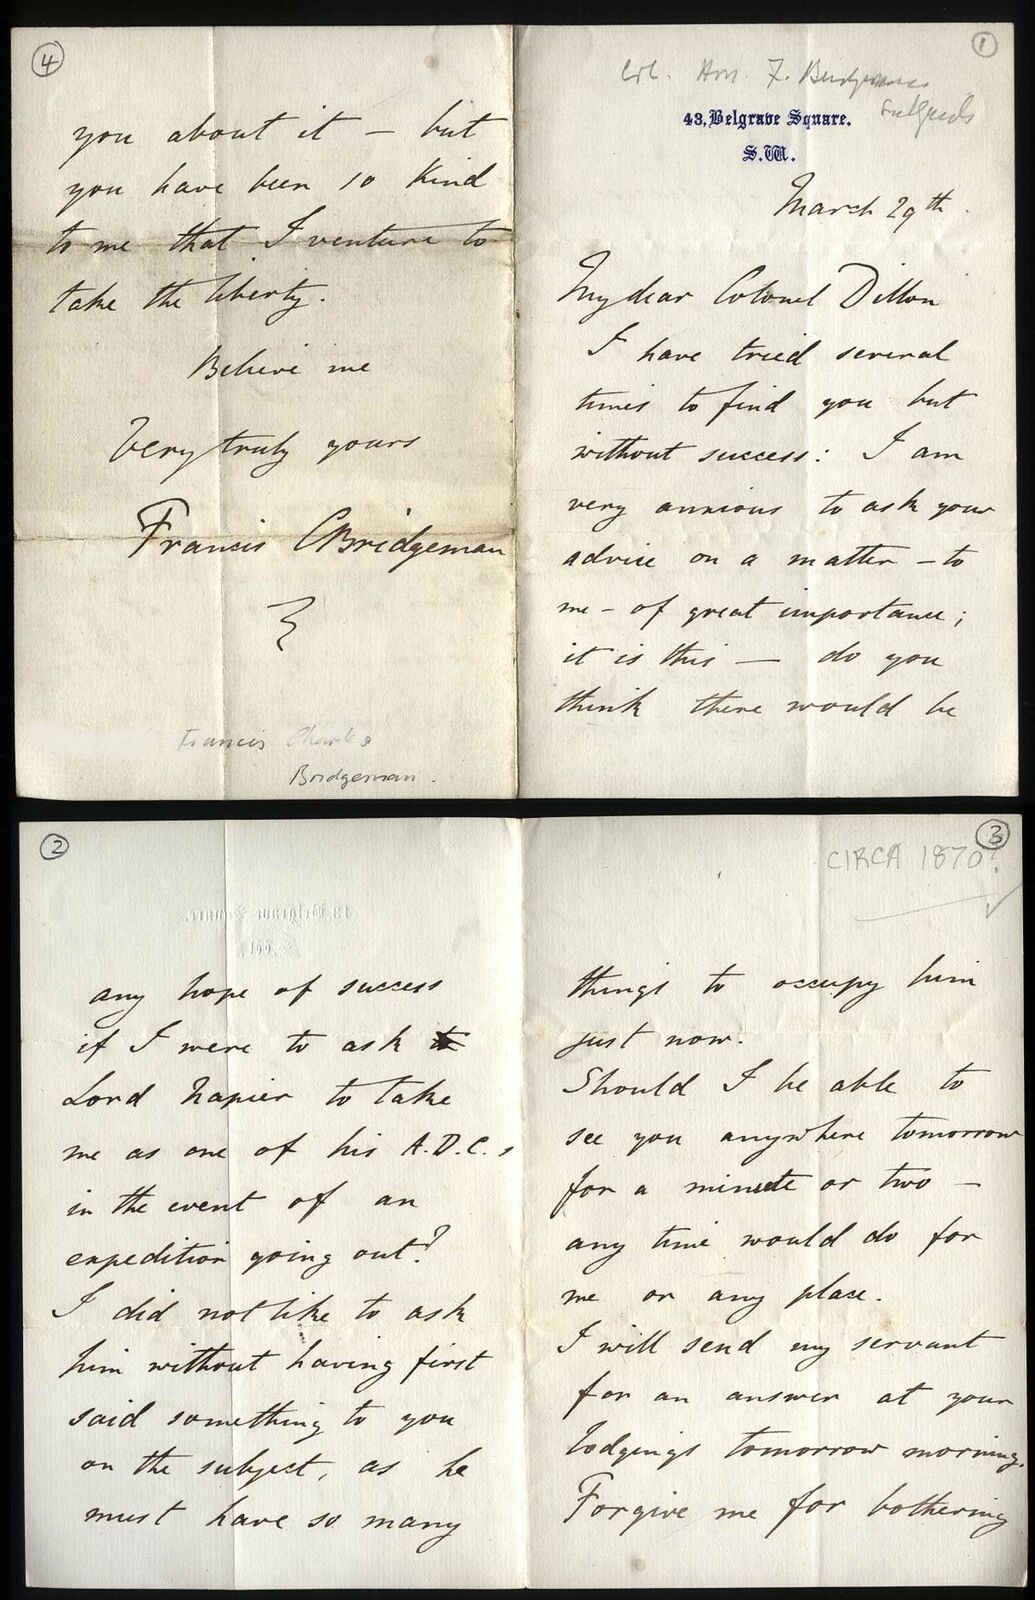 1
Col. Hon. F. Bridgeman
43, Belgrave Square.
S.W.
March 29th.
My dear Colonel Dillon
I have tried several
times to find you but
without success: I am
very anxious to ask your
advice on a matter – to
me – of great importance;
it is this — do you
think there would be
2
any hope of success
if I were to ask
Lord Napier to take
me as one of his A.D.C.s
in the event of an
expedition going out?
I did not like to ask
him without having first
said something to you
on the subject, as he
must have so many
3
CIRCA 1870?
things to occupy him
just now.
Should I be able to
see you anywhere tomorrow
for a minute or two –
any time would do for
me or any place.
I will send my servant
for an answer at your
lodgings tomorrow morning.
Forgive me for bothering
4
you about it – but
you have been so kind
to me that I venture to
take the liberty.
Believe me
Very truly yours
Francis CBridgeman
Francis Charles
Bridgeman.